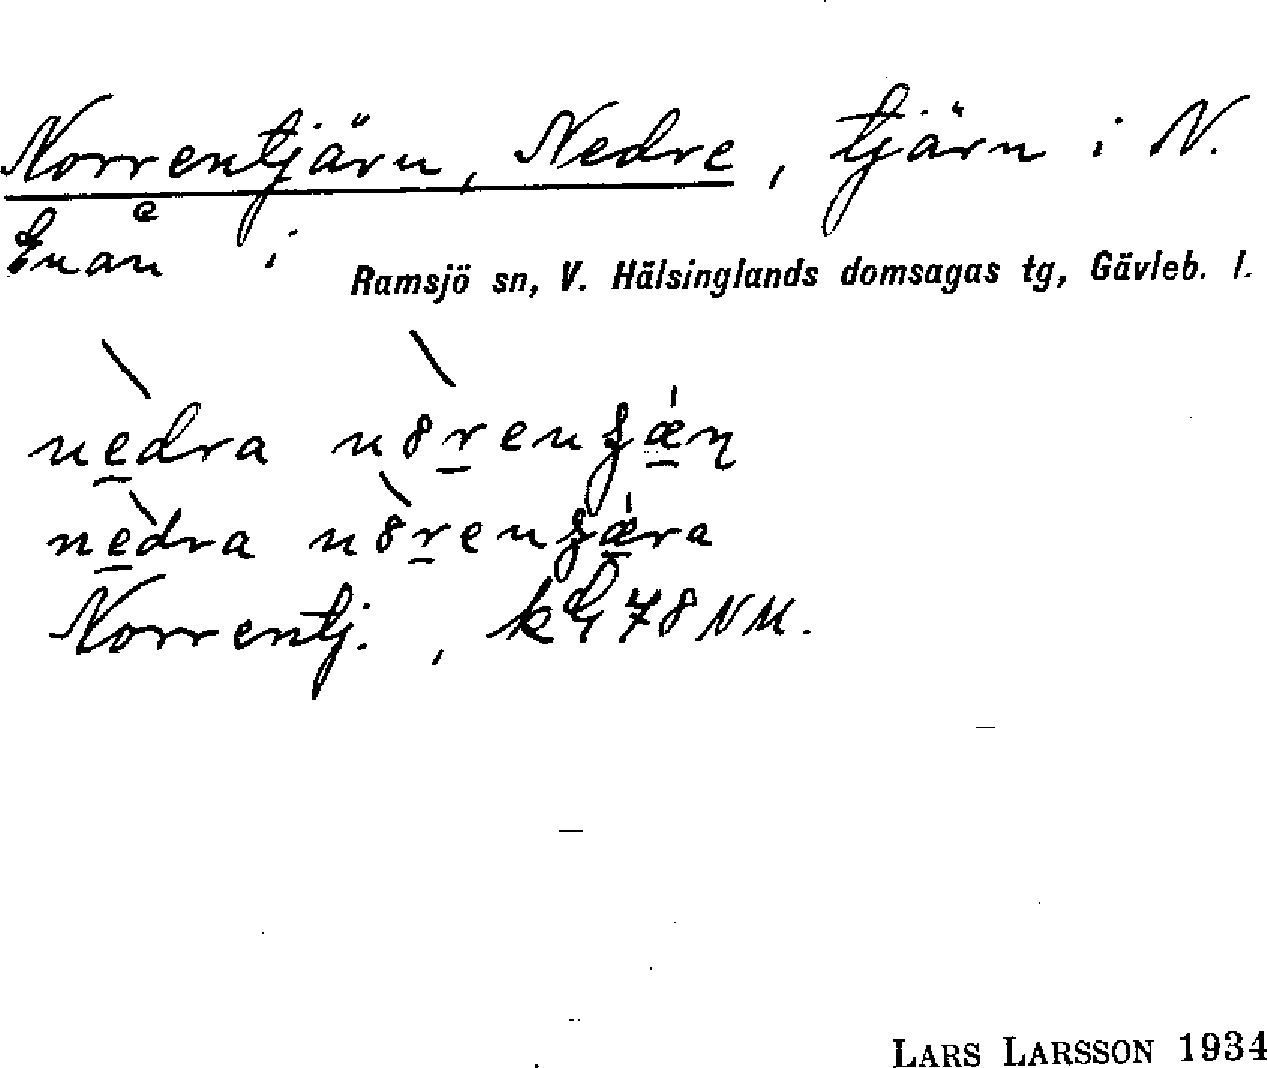 Norrentjärn, Nedre, tjärn i N.
Enån i
Ramsjö sn, V. Hälsinglands domsagas tg, Gävleb. l.
nedra
nedra
Norrentj., 78 NM.
LARS LARSSON 1934